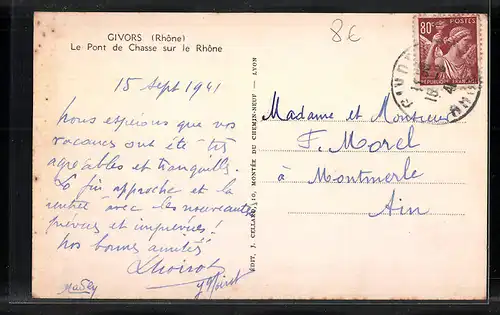 GIVORS (Rhône)
Le Pont de Chasse sur le Rhône
8€
80c
POSTES
REPUBLIQUE FRANCAISE
15 Sept 1941
Nous espérons que vos
vacances ont été très
agréables et tranquilles.
La fin approche et la
rentrée avec les nouveautés
prévues et imprévues!
Nos bonnes amitiés
EDIT. J. CELLARD, 10, MONTÉE DU CHEMIN-NEUF - LYON
Madame et Monsieur
F. Morel
à Montmerle
Ain